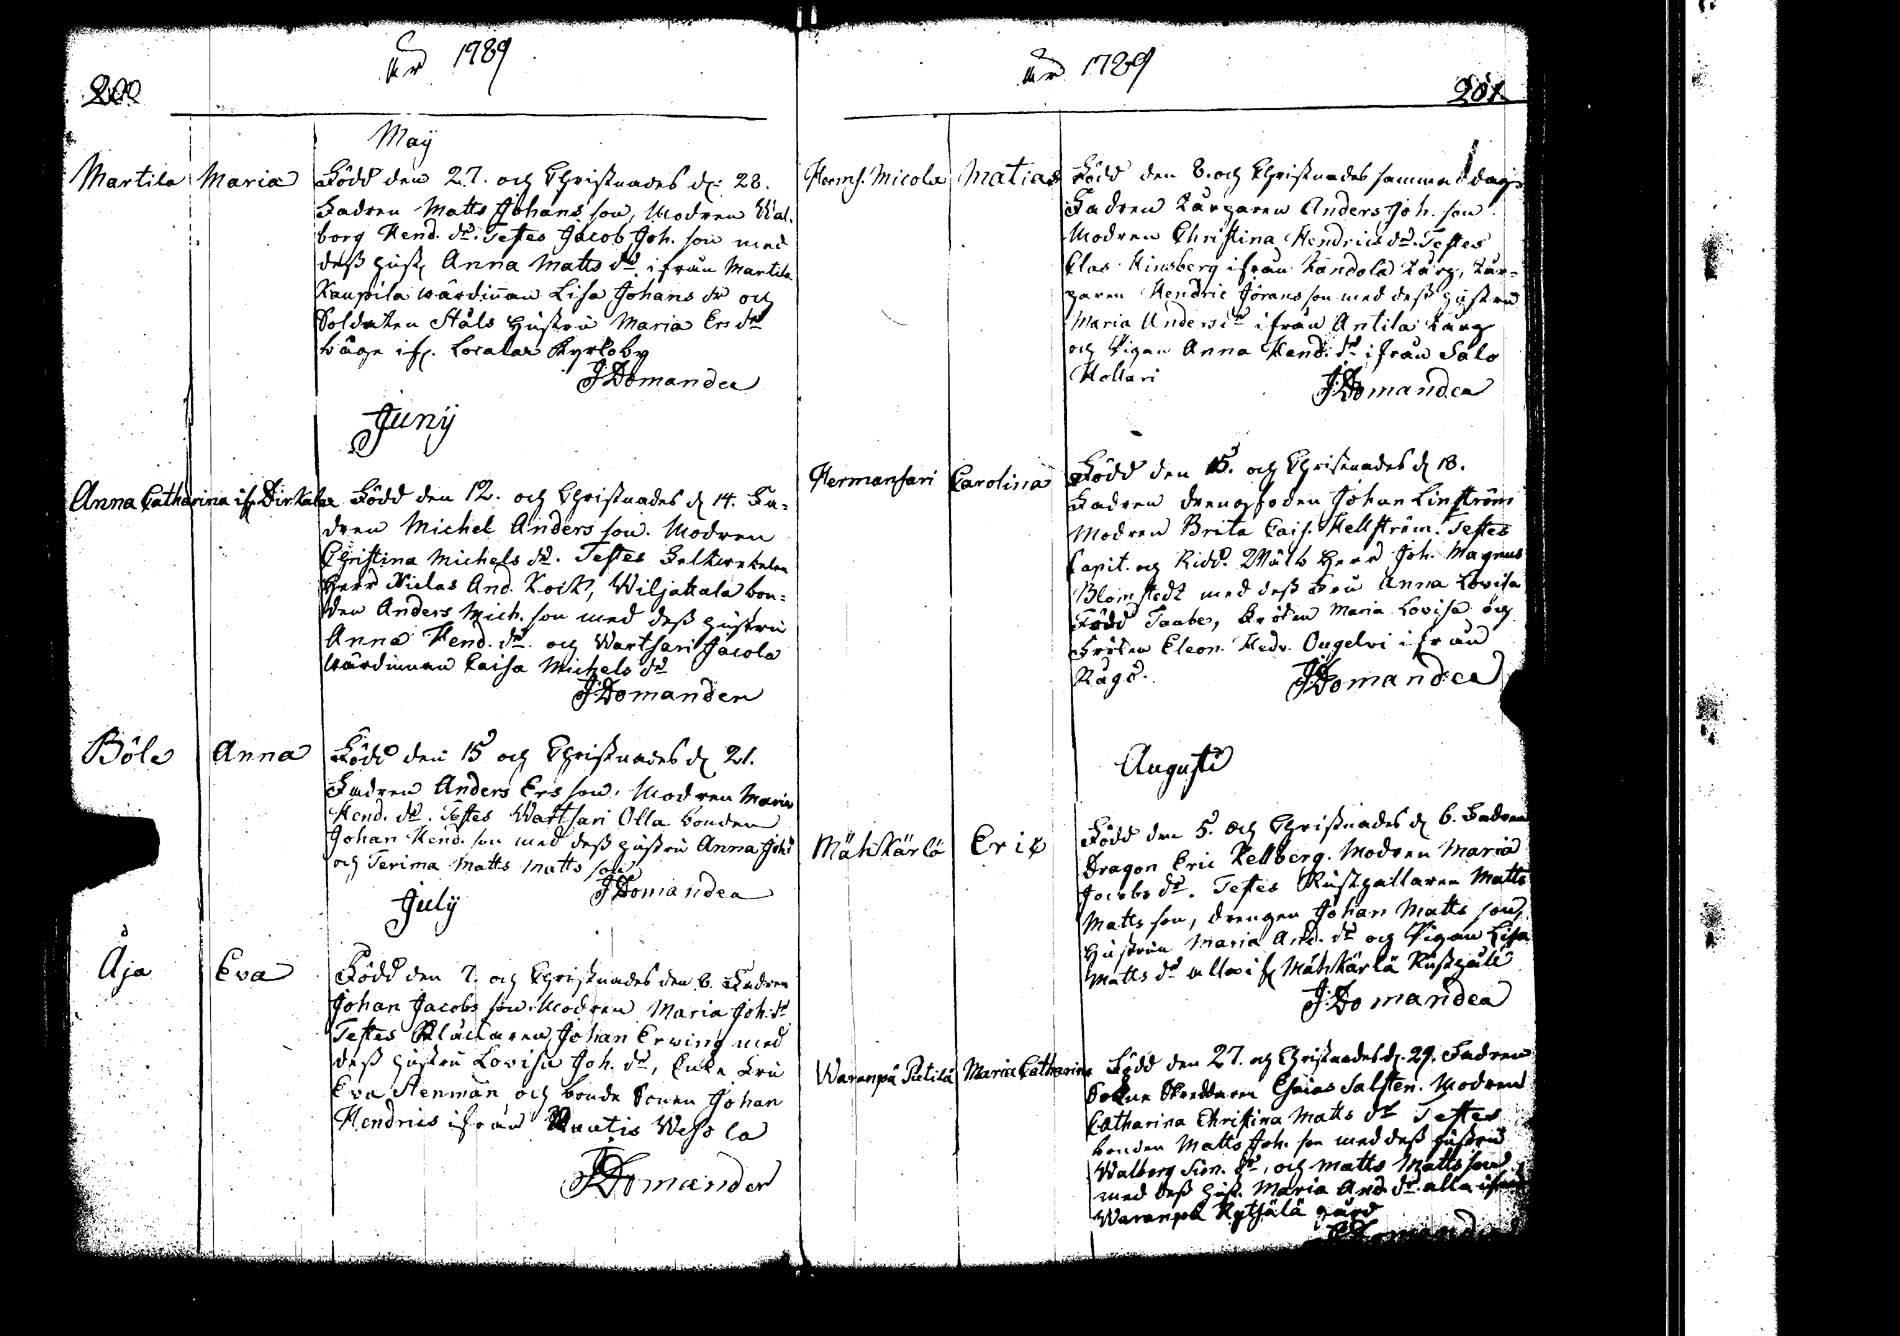 200
År 1789
May
Martila Maria Född den 27. och Christnades d. 28.
Fadren Matts Johans son, Modren Wal-
borg Hend. dr. Testes Jacob Joh. son med
dess hust. Anna Matts dr ifrån Martila
Kaupila wärdinnan Lisa Johans dr och
Soldaten Ståls Hustru Maria Ers dr
Kyrkoby
J Domander
Juny
Anna Catharina if. Född den 12. och Christnades d. 14. Fa-
dren Michel Anders son. Modren
Christina Michels dr. Testes
Herr Niclas And. Kock, Wiljakala bon-
den Anders Mich. son med dess hustru
Anna Hend. dr och Wartsari Jacola
wärdinnan Caisa Michels dr
J Domander
Böle Anna Född den 15 och Christnades d. 21.
Fadren Anders Ers son. Modren Maria
Hend. dr. Testes Wartsari Olla bonden
Johan Hend. son med dess hustru Anna Joh. dr
och Terima Matts Matts son
J Domander
July
Åja Eva Född den 7. och Christnades den 6. Fadren
Johan Jacobs son. Modren Maria Joh. dr
Testes Klåckaren Johan Erving med
dess hustru Lovisa Joh. dr, Enke Fru
Eva Stenman och bonde Sonen Johan
Hendrics ifrån
J Domander
År 1789
201.
Herms. Micola Matias Född den 8. och Christnades samma dag.
Fadren Torparen Anders Joh. son
Modren Christina Hendrics dr. Testes
Clas Hinsberg ifrån Torp, Tor-
paren Hendric Jörans son med dess hustru
Maria Anders dr ifrån Antila Torp
och Pigan Anna Hend. dr ifrån Salo
Hollari
J Domander
Hermansari Carolina Född den 15. och Christnades d. 18.
Fadren Johan Linström
Modren Brita Cais. Hellström. Testes
Capit. och Ridd. Wälb Herr Joh. Magnus
Blomstedt med dess Fru Anna Lovisa
Född Taube, Fröken Maria Lovisa och
Fröken Eleon. Hedv. ifrån
J Domander
Augusti
Mähkärlä Eric Född den 5. och Christnades d. 6. Fadren
Dragon Eric Kellberg. Modren Maria
Jacobs dr. Testes Rusthållaren Matts
Matts son, drengen Johan Matts son,
Hustrun Maria And. dr och Pigan Lisa
Matts dr alla if. Mähkärlä Rusthåll
J Domander
Waranpä Maria Catharina Född den 27. och Christnades d. 29. Fadren
Sokne Skreddaren Esaias Salsten. Modren
Catharina Christina Matts dr Testes
bonden Matts Joh. son med dess hustru
Walborg Sim. dr, och Matts Matts son
med dess hust. Maria And. dr alla ifrån
Waranpä gård
J Domander